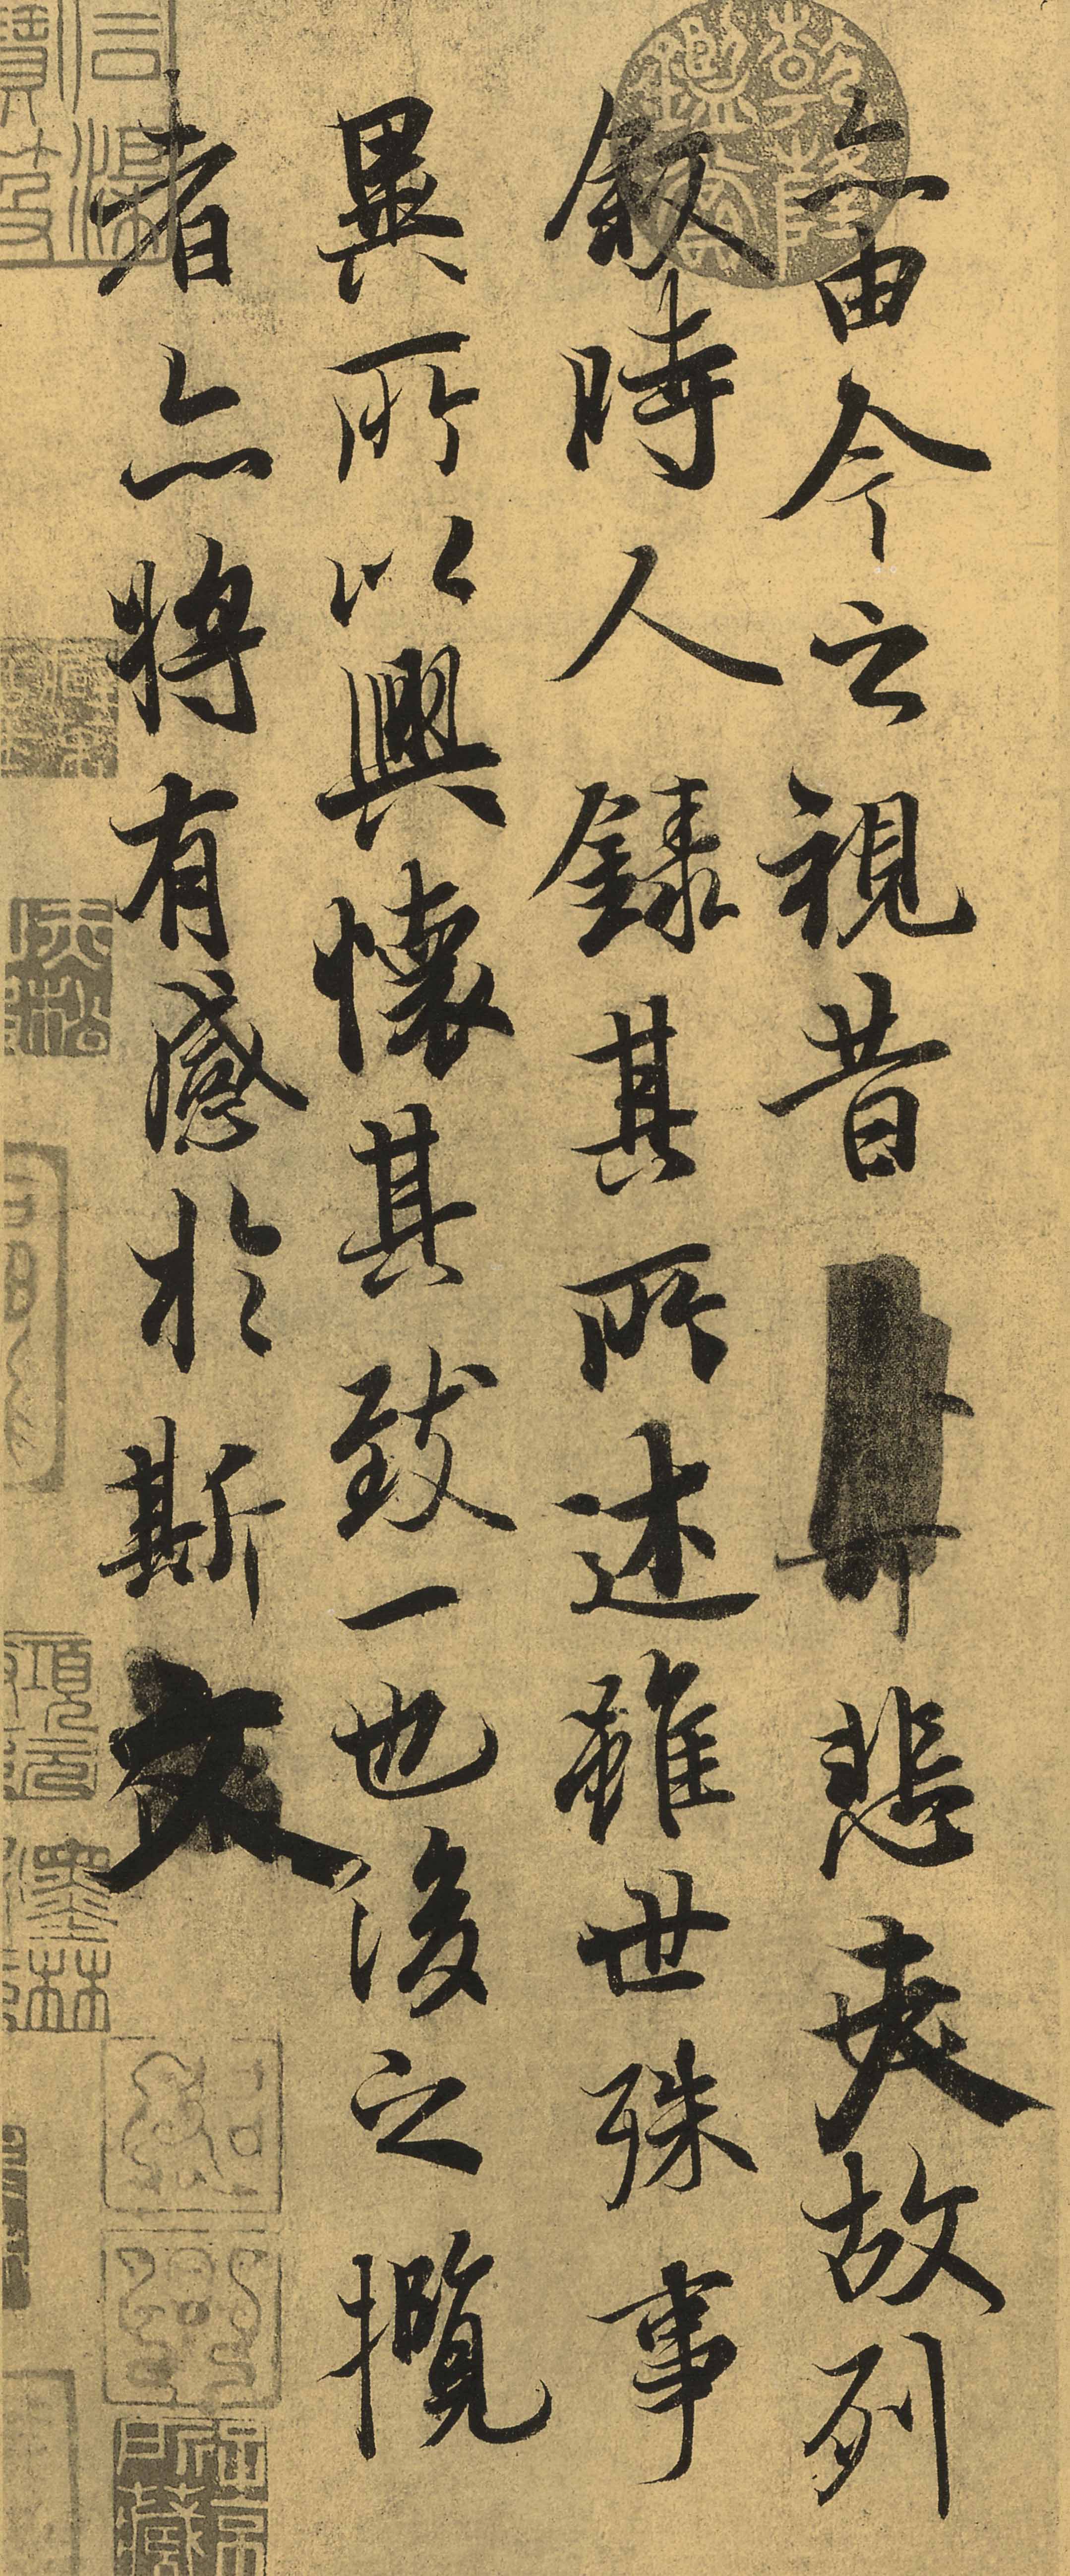 亦由今之視昔悲夫故列
叙時人錄其所述雖世殊事
異所以興懷其致一也後之攬
者亦將有感於斯文